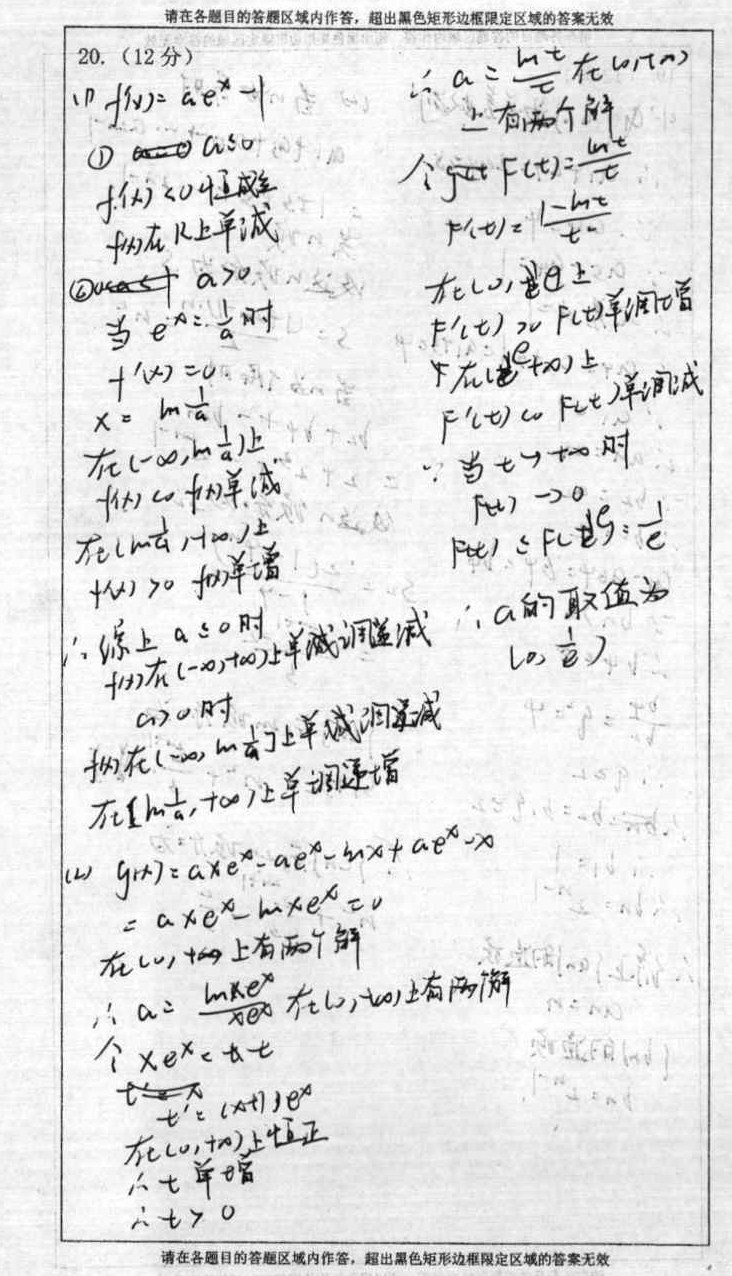 请在各题目的答题区域内作答，超出黑色矩形边框限定区域的答案无效
20.（12分）
(1) f'(x)=ae^x-1
① a≤0
f'(x)<0恒成立
f(x)在R上单减
② a>0
当 e^x=1/a 时
f'(x)=0
x= ln 1/a
在(-∞,ln 1/a)上
f'(x)<0 f(x)单减
在(ln 1/a,+∞)上
f'(x)>0 f(x)单增
∴综上 a≤0时
f(x)在(-∞,+∞)上单调递减
a>0时
f(x)在(-∞,ln 1/a]上单调递减
在[ln 1/a,+∞)上单调递增
(2) g(x)=axe^x-ae^x-lnx+ae^x-x
=axe^x-lnxe^x=0
在(0,+∞)上有两个解
∴ a= lnxe^x/xe^x 在(0,+∞)上有两解
令 xe^x=t
t'=(x+1)e^x
在(0,+∞)上恒正
∴t单增
∴t>0
∴ a= lnt/t 在(0,+∞)
上有两个解
令 F(t)=lnt/t
F'(t)=1-lnt/t²
在(0,e上
F'(t)>0 F(t)单调增
在(e,+∞)上
F'(t)<0 F(t)单调减
∵当t→+∞时
F(t)→0
F(t)≤F(e)=1/e
∴a的取值为
(0,1/e)
请在各题目的答题区域内作答，超出黑色矩形边框限定区域的答案无效